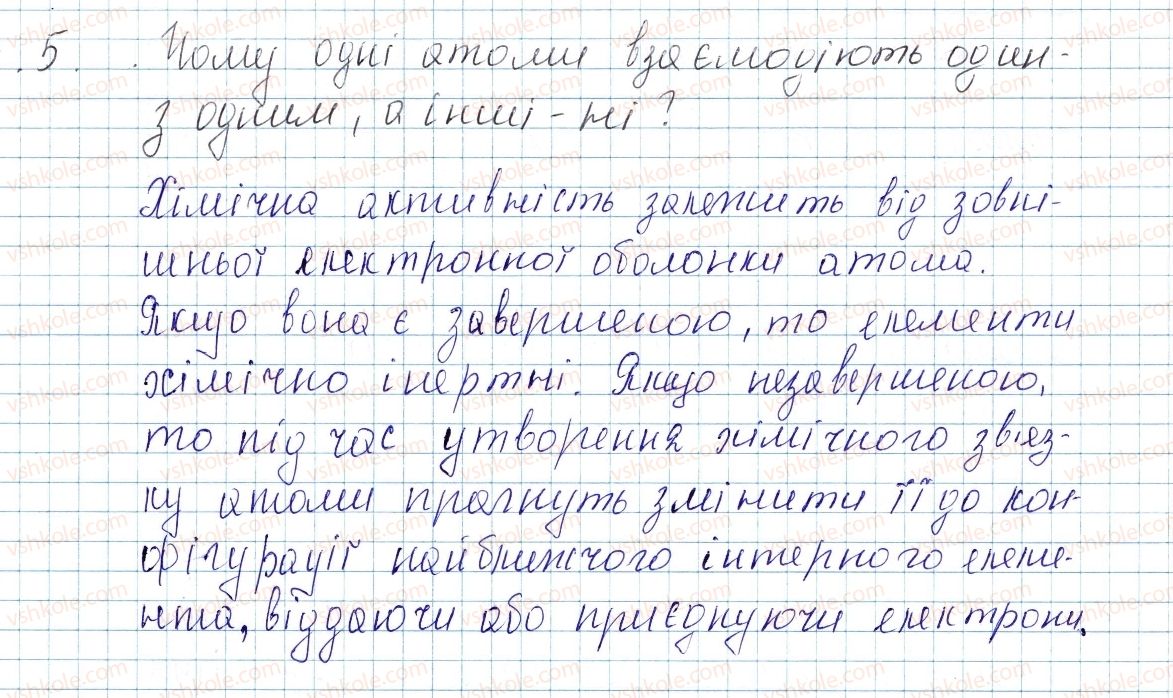 5. Чому одні атоми взаємодіють один
з одним, а інші - ні?
Хімічна активність залежить від зовні-
шньої електронної оболонки атома.
Якщо вона є завершеною, то елементи
хімічно інертні. Якщо незавершеною,
то під час утворення хімічного зв'яз-
ку атоми прагнуть змінити її до кон-
фігурації найближчого інтерного елеме-
нта, віддаючи або приєднуючи електрони.
vshkole.com